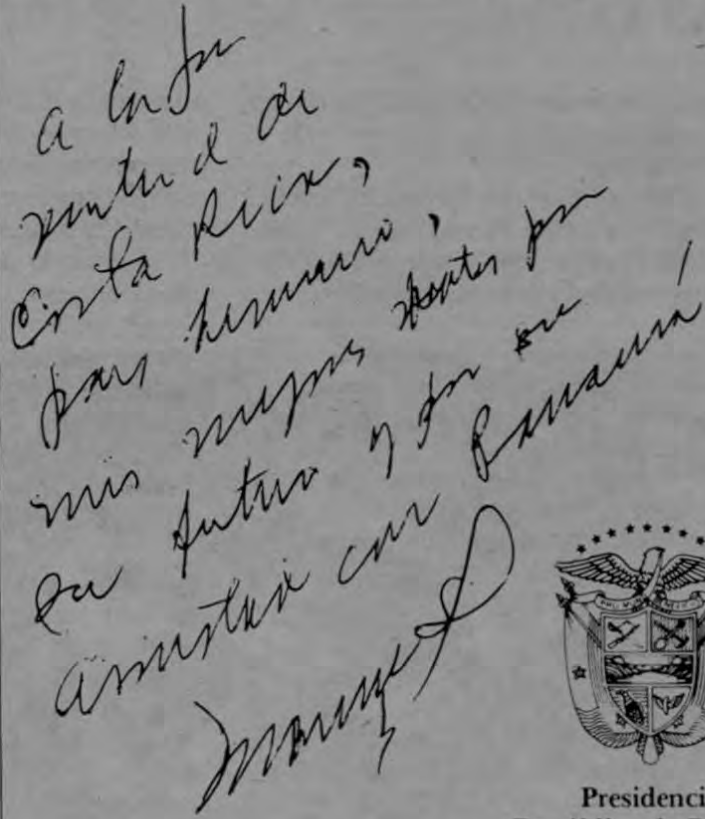 a la ju
ventud de
Costa Rica,
pais hermano,
mis mejores votos por
su futuro y por su
amistad con Panamá
Presidenci